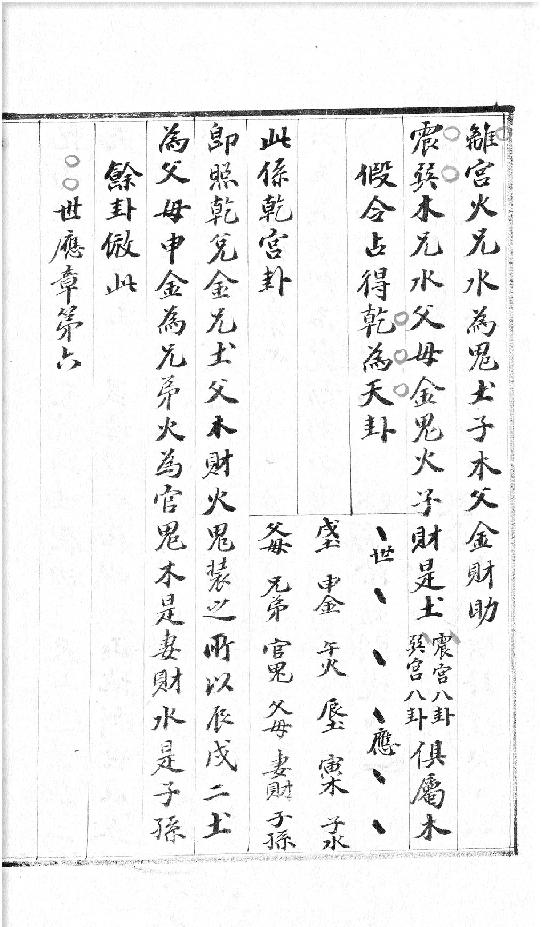 離宮火兄水為鬼土子木父金財助
震巽木兄水父母金鬼火子財是土震宮八卦巽宮八卦俱屬木
假令占得乾為天卦
、世、、、應、、
戌土 申金 午火 辰土 寅木 子水
父母 兄弟 官鬼 父母 妻財 子孫
此係乾宮卦
即照乾兌金兄土父木財火鬼裝之所以辰戌二土
為父母申金為兄弟火為官鬼木是妻財水是子孫
餘卦倣此
○○世應章第六